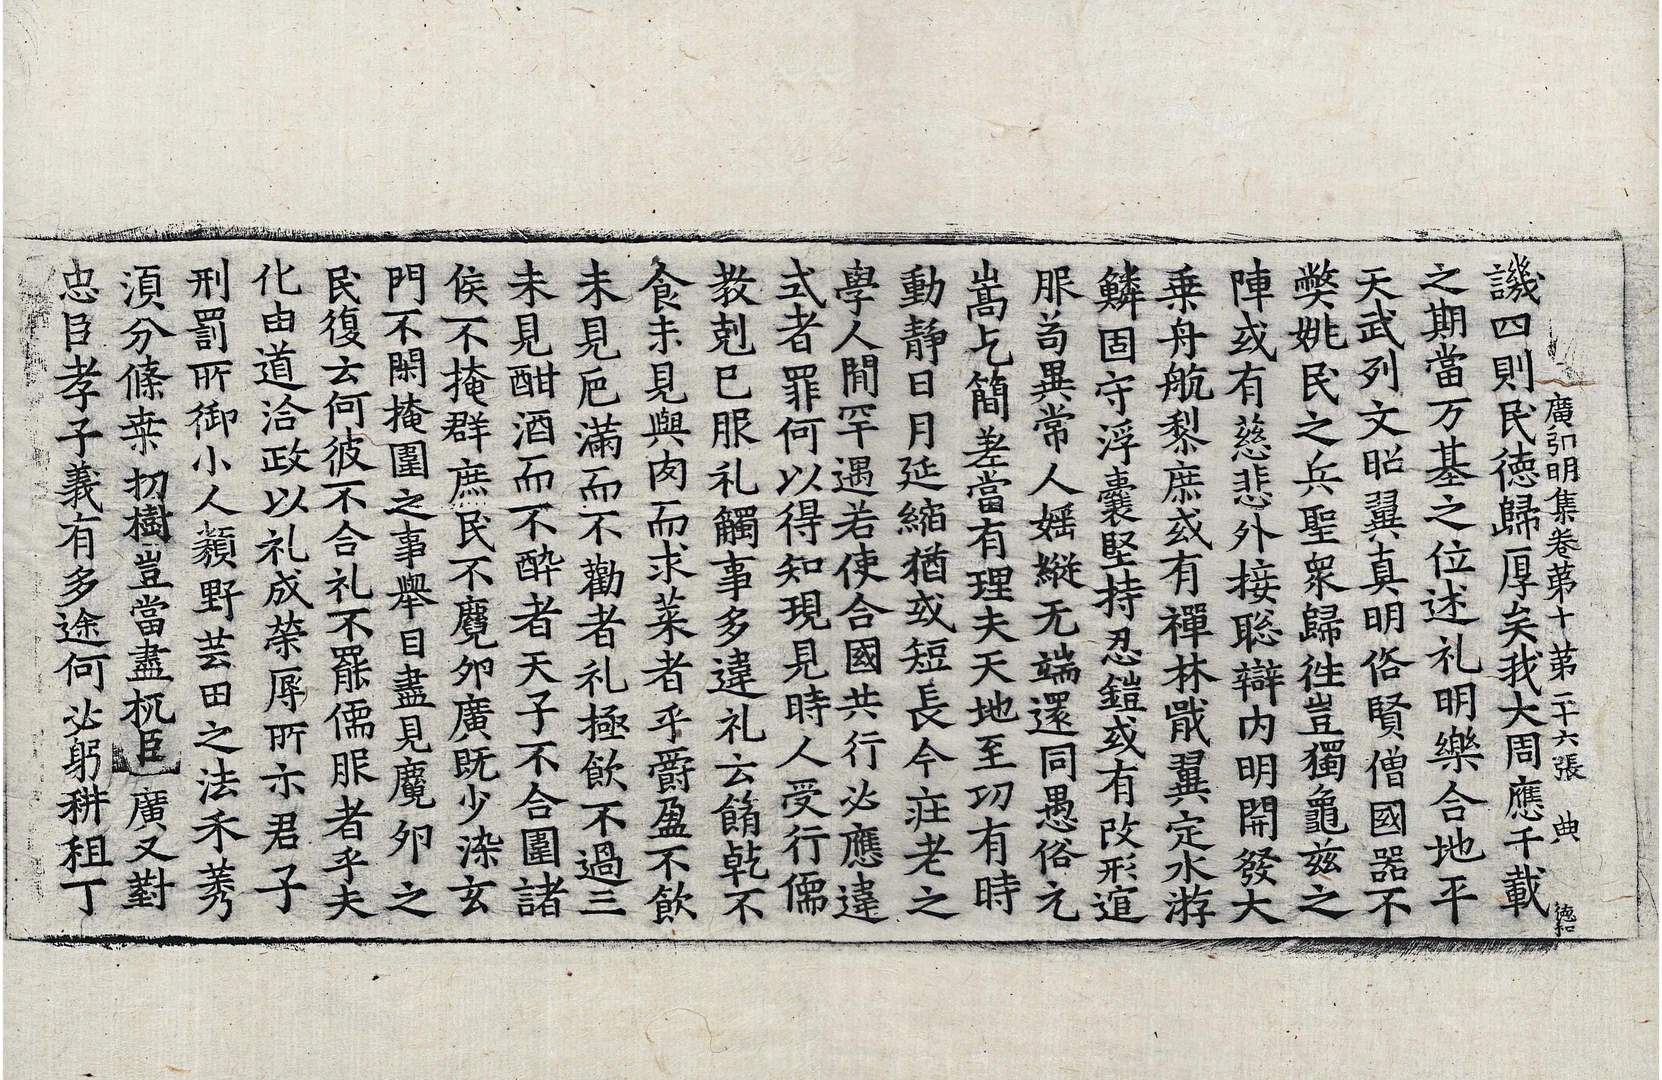 廣弘明集卷苐十 苐二十六張 典 德和
譏四則民德歸厚矣我大周應千載
之期當万基之位述礼明樂合地平
天武列文昭翼真明俗賢僧國器不
弊姚民之兵聖衆歸徃豈獨龜兹之
陣或有慈悲外接聡辯内明開發大
乗舟航黎庶或有禪林戢翼定水游
鱗固守浮囊堅持忍鎧或有改形䆠
服苟異常人婬縱无端還同愚俗元
嵩乞簡差當有理夫天地至功有時
動静日月延縮猶或短長今莊老之
學人間罕遇若使合國共行必應違
式者罪何以得知現見時人受行儒
教剋已服礼觸事多違礼云餚乹不
食未見與肉而求菜者乎爵盈不飲
未見巵滿而不勸者礼極飲不過三
未見酣酒而不醉者天子不合圍諸
侯不掩群庶民不麛夘廣既少染玄
門不閑掩圍之事舉目盡見麛夘之
民復云何彼不合礼不罷儒服者乎夫
化由道洽政以礼成榮辱所示君子
刑罰所御小人類野芸田之法禾莠
湏分條桒切樹豈當盡杌臣廣又對
忠臣孝子義有多途何必躬耕租丁